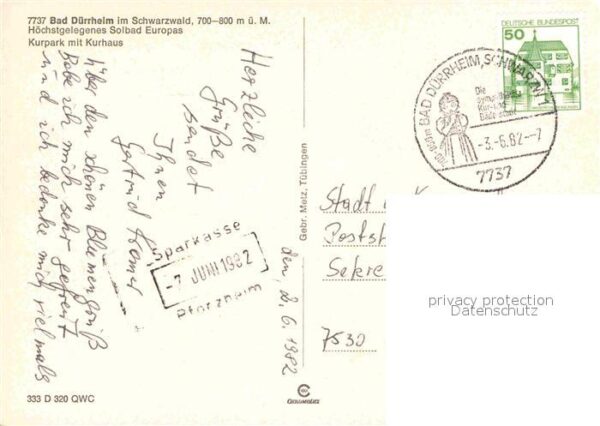 7737 Bad Dürrheim im Schwarzwald, 700–800 m ü. M.
Höchstgelegenes Solbad Europas
Kurpark mit Kurhaus
Herzliche
Grüße
sendet
Ihnen
Gertrud
über den schönen Blumengruß
habe ich mich sehr gefreut
und ich bedanke mich vielmals
den, 2.6.1982
Sparkasse
-7. JUNI 1982
Pforzheim
Gebr. Metz, Tübingen
DEUTSCHE BUNDESPOST
50
BAD DÜRRHEIM, SCHWARZW 1
Die
-3.-6.82--7
7737
Stadt
Postst
Sekre
7530
privacy protection
Datenschutz
333 D 320 QWC